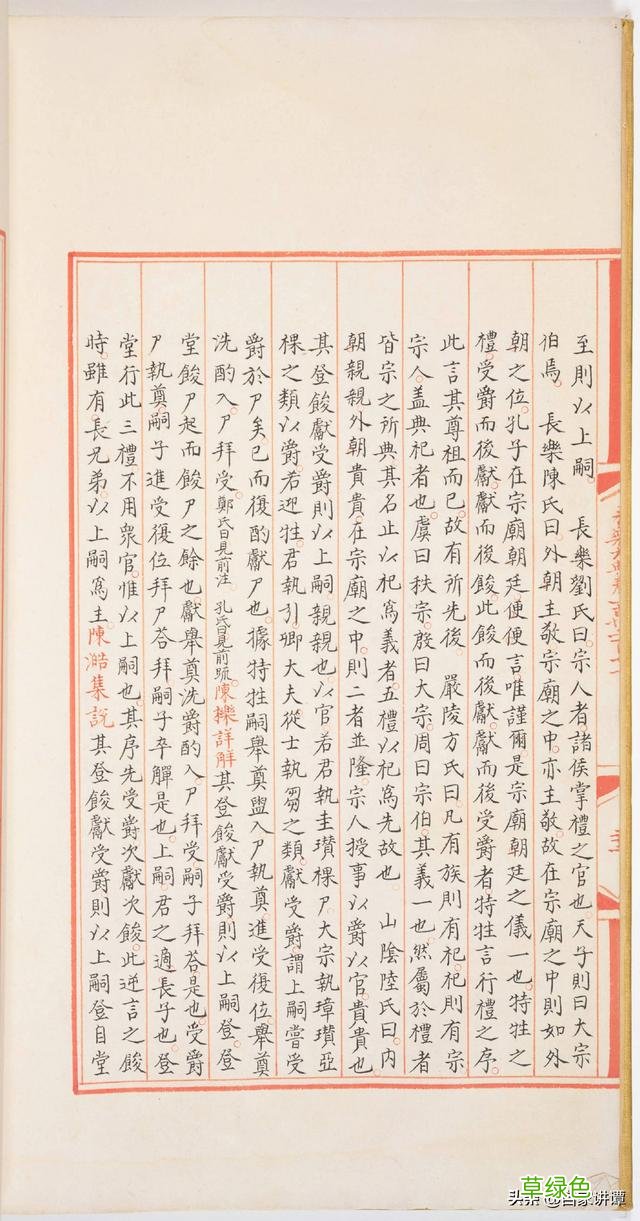 至則以上嗣。 長樂劉氏曰。宗人者諸侯掌禮之官也。天子則曰大宗
伯焉。 長樂陳氏曰。外朝主敬宗廟之中。亦主敬。故在宗廟之中則如外
朝之位。孔子在宗廟朝廷便便言唯謹爾。是宗廟朝廷之儀一也。特牲之
禮。受爵而後獻。獻而後餕。此餕而後獻。獻而後受爵者特牲言行禮之序。
此言其尊祖而已。故有所先後。 嚴陵方氏曰。凡有族則有祀。祀則有宗
宗人。蓋典祀者也。虞曰秩宗。殷曰大宗。周曰宗伯。其義一也。然屬於禮者
皆宗之所典其名止以祀為義者。五禮以祀為先故也。 山陰陸氏曰。內
朝親親。外朝貴貴。在宗廟之中。則二者並隆。宗人授事以爵以官。貴貴也。
其登餕獻受爵則以上嗣。親親也。以官若君執圭瓚祼尸。大宗執璋瓚亞
祼之類。以爵。若迎牲。君執引。卿大夫從士執芻之類。獻受爵。謂上嗣嘗受
爵於尸矣。已而復酌獻尸也。據特牲嗣舉奠盥入。尸執奠。進受復位。舉奠
洗酌入。尸拜受。鄭氏曰見前注。 孔氏曰見前疏。陳櫟詳解其登餕獻受爵則以上嗣登。登
堂餕尸起而餕尸之餘也。獻舉奠洗爵酌入。尸拜受嗣子拜荅是也。受爵
尸執奠。嗣子進受復位拜尸荅拜。嗣子卒觶是也。上嗣。君之適長子也。登
堂行此三禮不用衆官。惟以上嗣也。其序先受爵次獻次餕。此逆言之餕
時。雖有。長兄弟。以上嗣為主。陳澔集說其登餕獻受爵則以上嗣登自堂
草绿色
头条 @百家讲谭